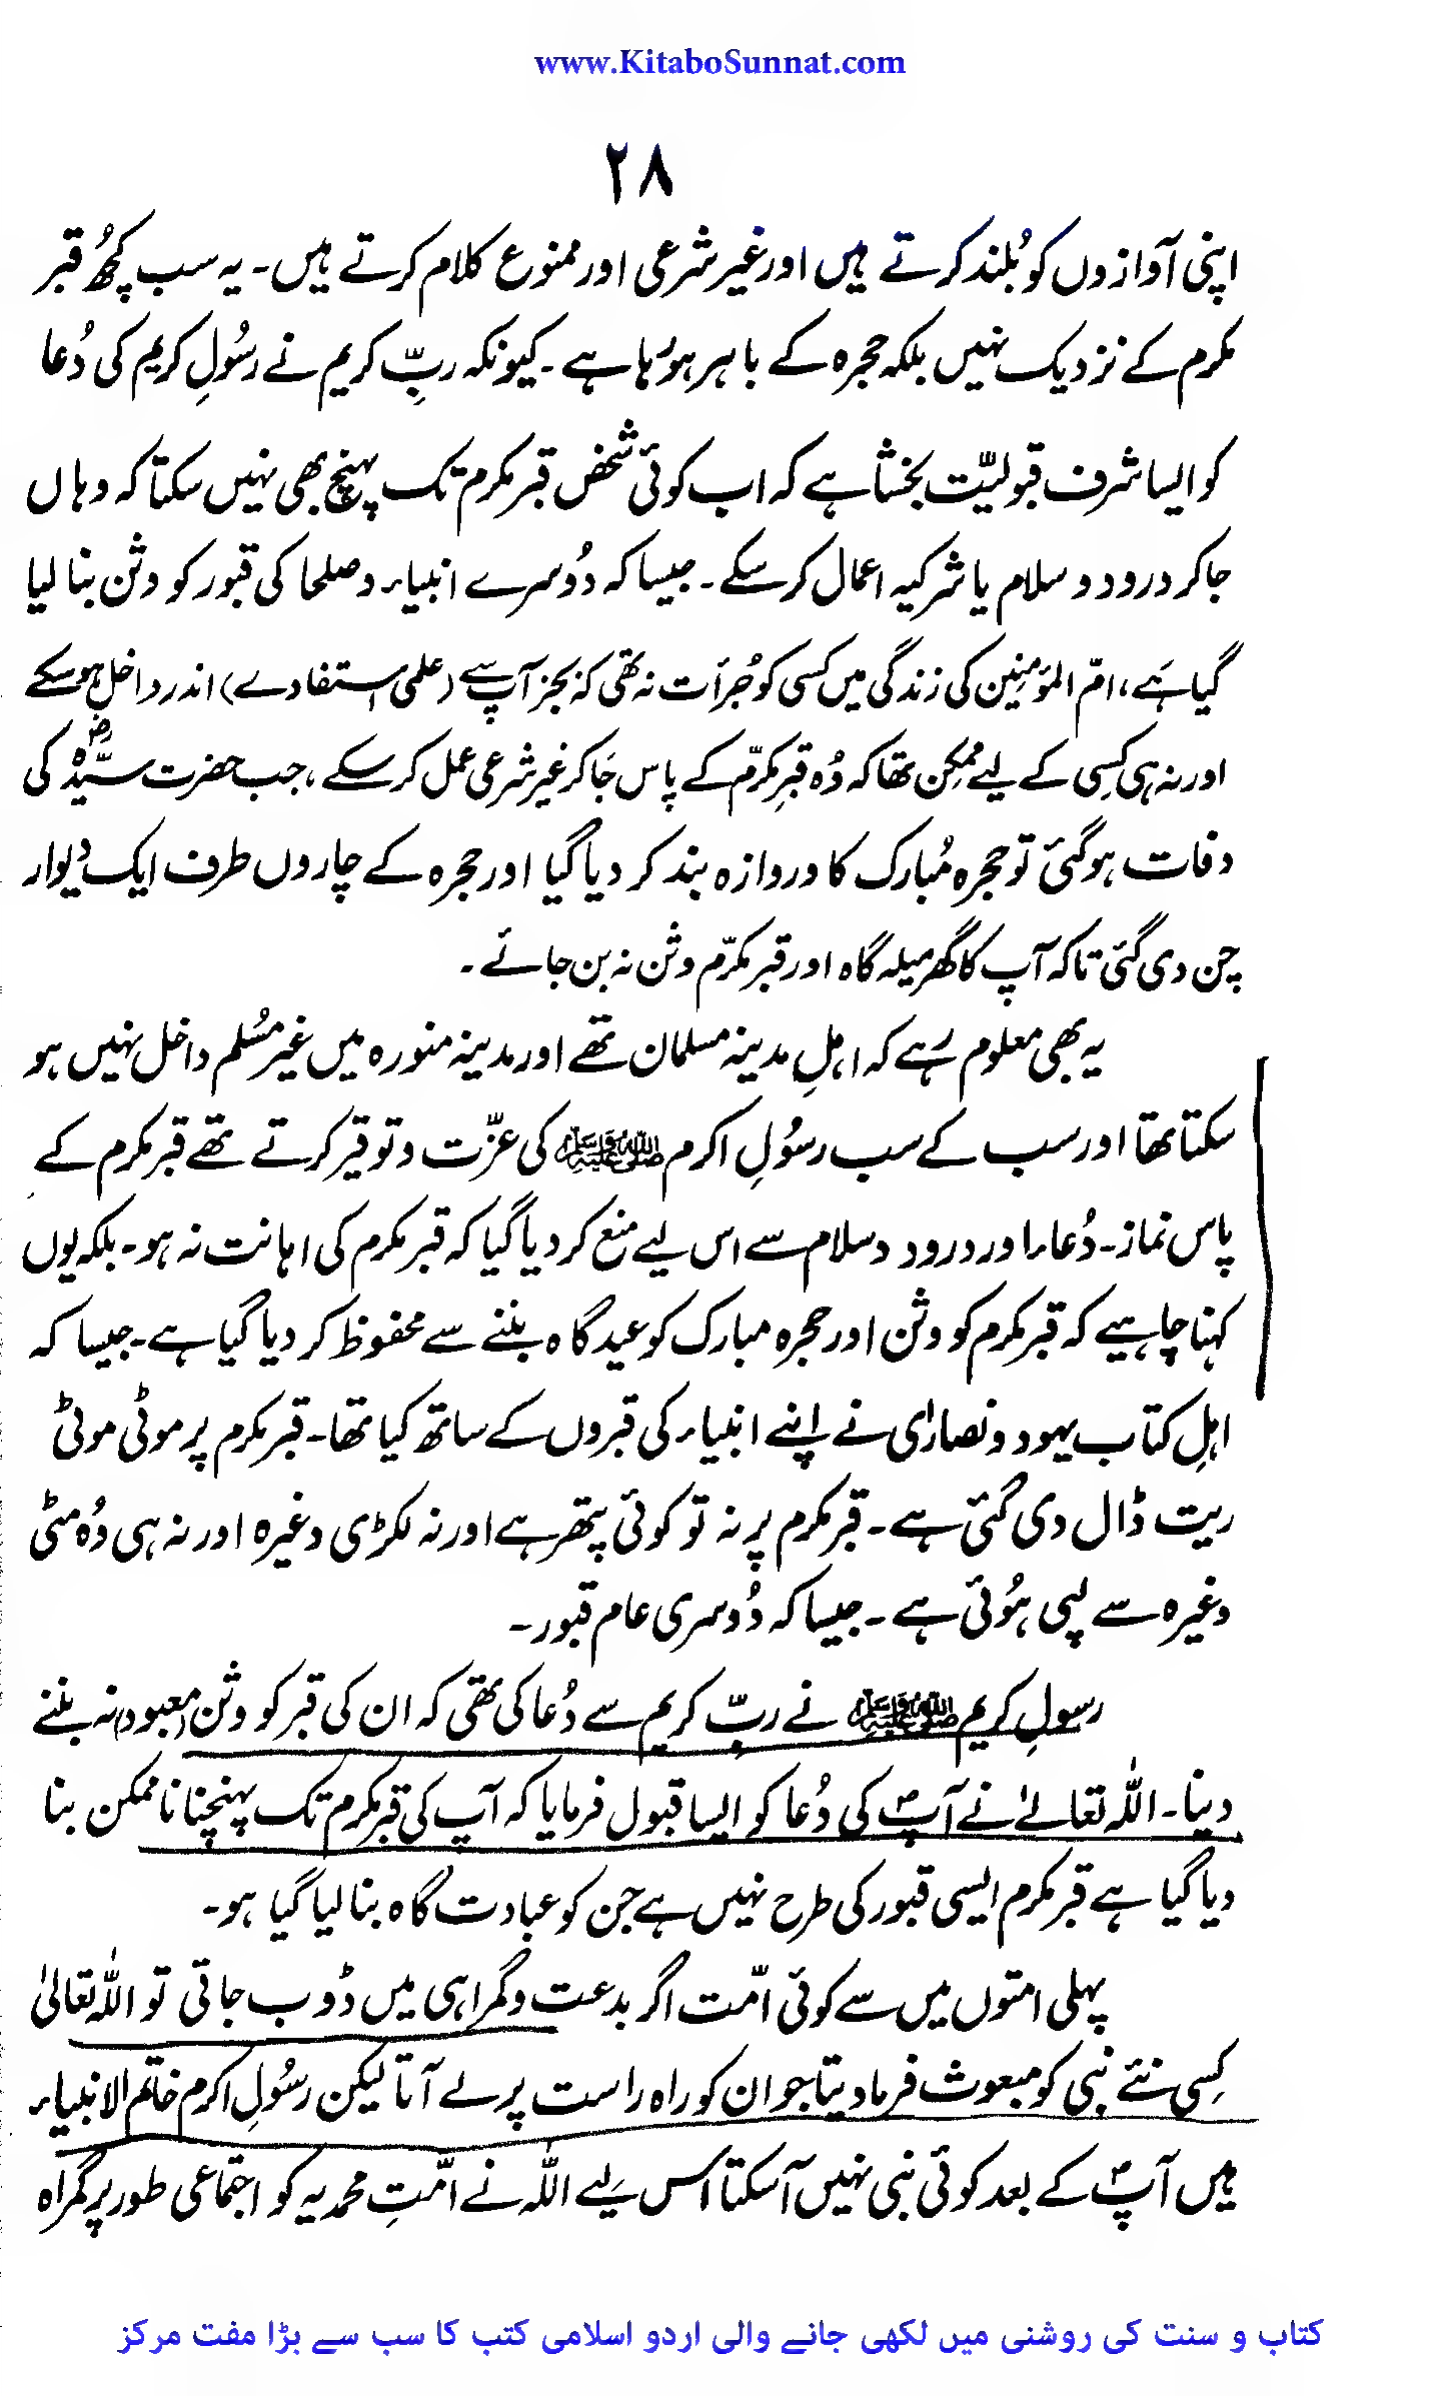 www.KitaboSunnat.com
۲۸
اپنی آوازوں کو بُلند کرتے ہیں اور غیر شرعی اور ممنوع کلام کرتے ہیں۔ یہ سب کچھُ قبر
مکرم کے نزدیک نہیں بلکہ حجرہ کے باہر ہو رہا ہے۔ کیونکہ ربِّ کریم نے رسُولِ کریم کی دُعا
کو ایسا شرف قبولیّت بخشا ہے کہ اب کوئی شخص قبر مکرم تک پہنچ بھی نہیں سکتا کہ وہاں
جا کر درود و سلام یا شرکیہ اعمال کر سکے۔ جیسا کہ دُوسرے انبیاء و صلحا کی قبور کو وثن بنا لیا
گیا ہَے، امّ المؤمنین کی زندگی میں کسی کو جُرأت نہ تھی کہ بجز آپ سے (علمی استفادے) اندر داخل ہو سکے
اور نہ ہی کسِی کے لیے ممکِن تھا کہ وُہ قبرِ مکرّم کے پاس جَا کر غیر شرعی عمل کر سکے، جب حضرت سیّدہؓ کی
وفات ہو گئی تو حجرہ مُبارک کا دروازہ بند کر دیا گیا اور حجرہ کے چاروں طرف ایک دیوار
چن دی گئی تاکہ آپ کا گھر میلہ گاہ اور قبر مکرّم وثن نہ بن جائے۔
یہ بھی معلوم رہے کہ اہلِ مدینہ مسلمان تھے اور مدینہ منورہ میں غیر مُسلم داخل نہیں ہو
سکتا تھا اور سب کے سب رسُولِ اکرم ﷺ کی عزّت و توقیر کرتے تھے قبر مکرم کے
پاس نماز۔ دُعاء اور درود و سلام سے اس لیے منع کر دیا گیا کہ قبر مکرم کی اہانت نہ ہو۔ بلکہ یوں
کہنا چاہیے کہ قبر مکرم کو وثن اور حجرہ مبارک کو عید گاہ بننے سے محفوظ کر دیا گیا ہے۔ جیسا کہ
اہلِ کتاب یہود و نصارٰی نے اپنے انبیاء کی قبروں کے ساتھ کیا تھا۔ قبر مکرم پر موٹی موٹی
ریت ڈال دی گئی ہے۔ قبر مکرم پر نہ تو کوئی پتھر ہے اور نہ لکڑی وغیرہ اور نہ ہی وُہ مٹی
وغیرہ سے لپی ہُوئی ہے۔ جیسا کہ دُوسری عام قبور۔
رسولِ کریم ﷺ نے ربِّ کریم سے دُعا کی تھی کہ ان کی قبر کو وثن (معبود) نہ بننے
دینا۔ اللہ تعالےٰ نے آپؐ کی دُعا کو ایسا قبول فرمایا کہ آپ کی قبر مکرم تک پہنچنا ناممکن بنا
دیا گیا ہے قبر مکرم ایسی قبور کی طرح نہیں ہے جن کو عبادت گاہ بنا لیا گیا ہو۔
پہلی امتوں میں سے کوئی امّت اگر بدعت و گمراہی میں ڈوب جاتی تو اللہ تعالیٰ
کسِی نئے نبی کو مبعوث فرما دیتا جو ان کو راہ راست پر لے آتا لیکن رسُولِ اکرم خاتم الانبیاء
ہیں آپؐ کے بعد کوئی نبی نہیں آ سکتا اس لَیے اللہ نے امّتِ محمدیہ کو اجتماعی طور پر گمراہ
کتاب و سنت کی روشنی میں لکھی جانے والی اردو اسلامی کتب کا سب سے بڑا مفت مرکز